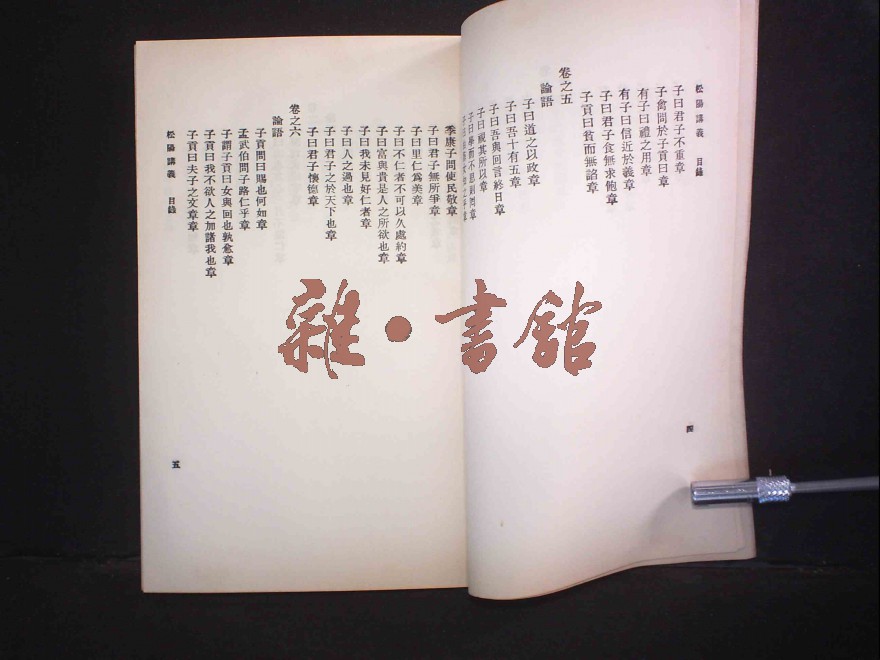 松陽講義 目錄
子曰君子不重章
子禽問於子貢曰章
有子曰禮之用章
有子曰信近於義章
子曰君子食無求飽章
子貢曰貧而無諂章
卷之五
論語
子曰道之以政章
子曰吾十有五章
子曰吾與回言終日章
子曰視其所以章
子曰學而不思則罔章
四
季康子問使民敬章
子曰君子無所爭章
子曰里仁爲美章
子曰不仁者不可以久處約章
子曰富與貴是人之所欲也章
子曰我未見好仁者章
子曰人之過也章
子曰君子之於天下也章
子曰君子懷德章
卷之六
論語
子貢問曰賜也何如章
孟武伯問子路仁乎章
子謂子貢曰女與回也孰愈章
子貢曰我不欲人之加諸我也章
子貢曰夫子之文章章
松陽講義 目錄
五
雜·書館